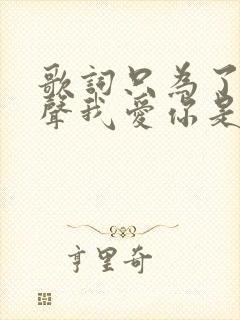 歌詞只為了
聲我愛你是
亨里奇